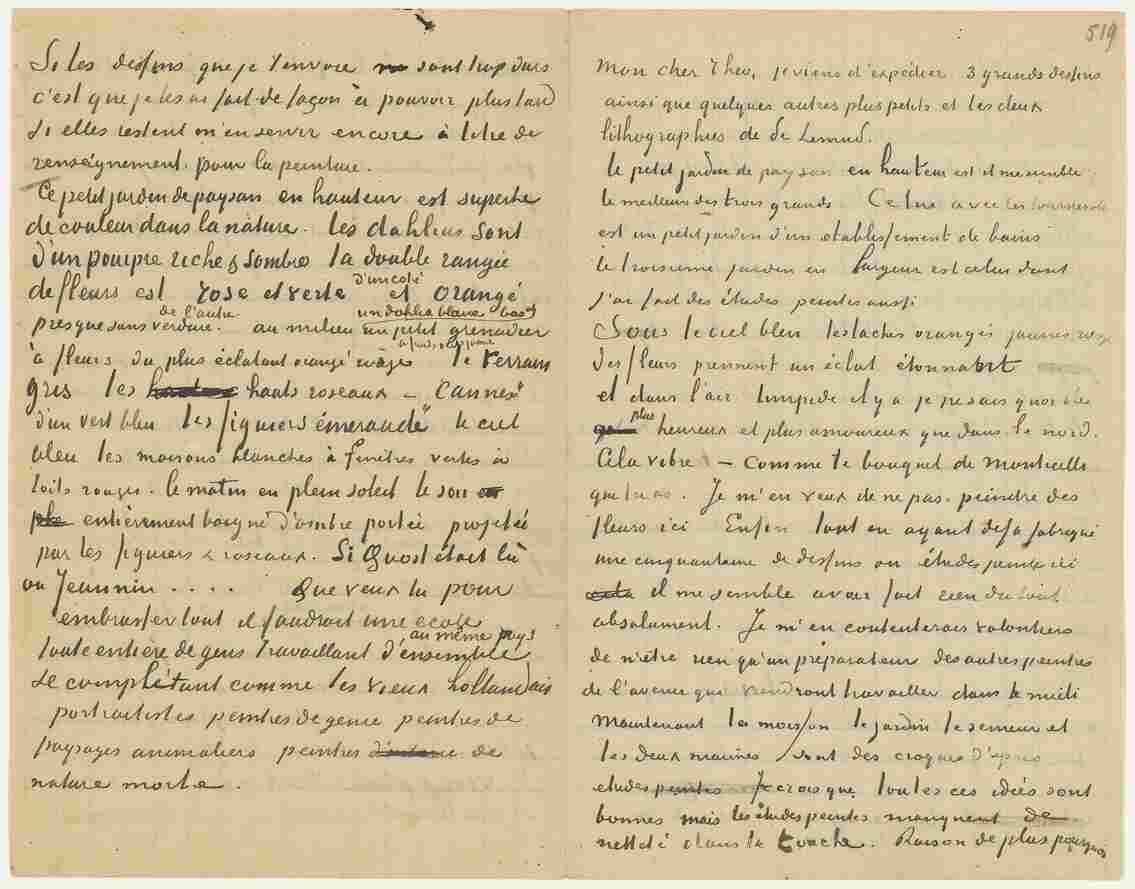 Si les dessins que je t'envoie sont trop durs
c'est que je les ai fait de façon à pouvoir plus tard
si elles restent m'en servir encore à titre de
renseignement pour la peinture.
Ce petit jardin de paysan en hauteur est superbe
de couleur dans la nature. les dahlias sont
d'un pourpre riche & sombre la double rangée
de fleurs est rose et verte d'un coté et orangé
presque sans verdure de l'autre. au milieu un dahlia blanc bas et un petit grenadier
à fleurs du plus éclatant orangé rouge à fruits vert jaune le terrain
gris les hauts roseaux – "Cannes"
d'un vert bleu les figuiers émeraude le ciel
bleu les maisons blanches à fenêtres vertes à
toits rouges. le matin en plein soleil le soir
entièrement baigné d'ombre portée projetée
par les figuiers & roseaux. Si Quost était là
ou Jeannin . . . . Que veux tu pour
embrasser tout il faudrait une ecole
toute entière de gens travaillant d'ensemble au même pays
se complêtant comme les vieux hollandais
portraitistes peintres de genre peintres de
paysages animaliers peintres de
nature morte.
519
Mon cher Theo, je viens d'expédier 3 grands dessins
ainsi que quelques autres plus petits et les deux
lithographies de de Lemud.
le petit jardin de paysan en hauteur est il me semble
le meilleur des trois grands. Celui avec les tournesols
est un petit jardin d'un etablissement de bains
le troisieme jardin en largeur est celui dont
j'ai fait des études peintes aussi
Sous le ciel bleu les taches orangés jaunes rouges
des fleurs prennent un éclat étonnant
et dans l'air limpide il y a je ne sais quoi de
plus heureux et plus amoureux que dans le nord.
Cela vibre – comme le bouquet de Monticelli
que tu as. Je m'en veux de ne pas peindre des
fleurs ici Enfin tout en ayant deja fabriqué
une cinquantaine de dessins ou études peintes ici
il me semble avoir fait rien du tout
absolument. Je m'en contenterais volontiers
de n'être rien qu'un préparateur des autres peintres
de l'avenir qui viendront travailler dans le midi
Maintenant la moisson le jardin le semeur et
les deux marines sont des croquis d'après
etudes peintes Je crois que toutes ces idées sont
bonnes mais les études peintes manquent de
netteté dans la touche. Raison de plus pourquoi